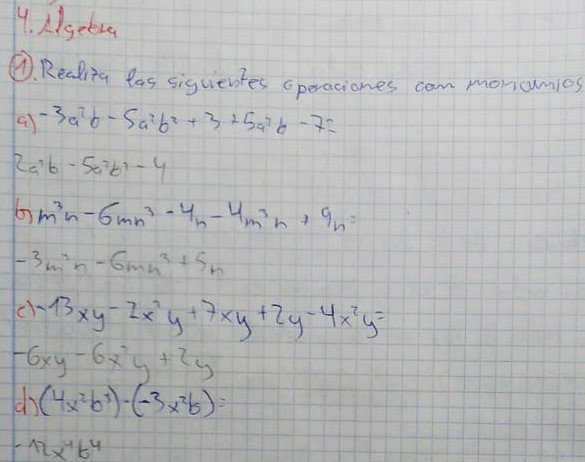 4. Álgebra
1). Realiza las siguientes operaciones con monomios
a) -3a²b - 5a²b² + 3 + 5a²b - 7 =
2a²b - 5a²b² - 4
b) m³n - 6mn³ - 4n - 4m³n + 9n =
-3m³n - 6mn³ + 5n
c) -13xy - 2x²y + 7xy + 2y - 4x²y =
-6xy - 6x²y + 2y
d) (4x²b³)·(-3x²b) =
-12x⁴b⁴